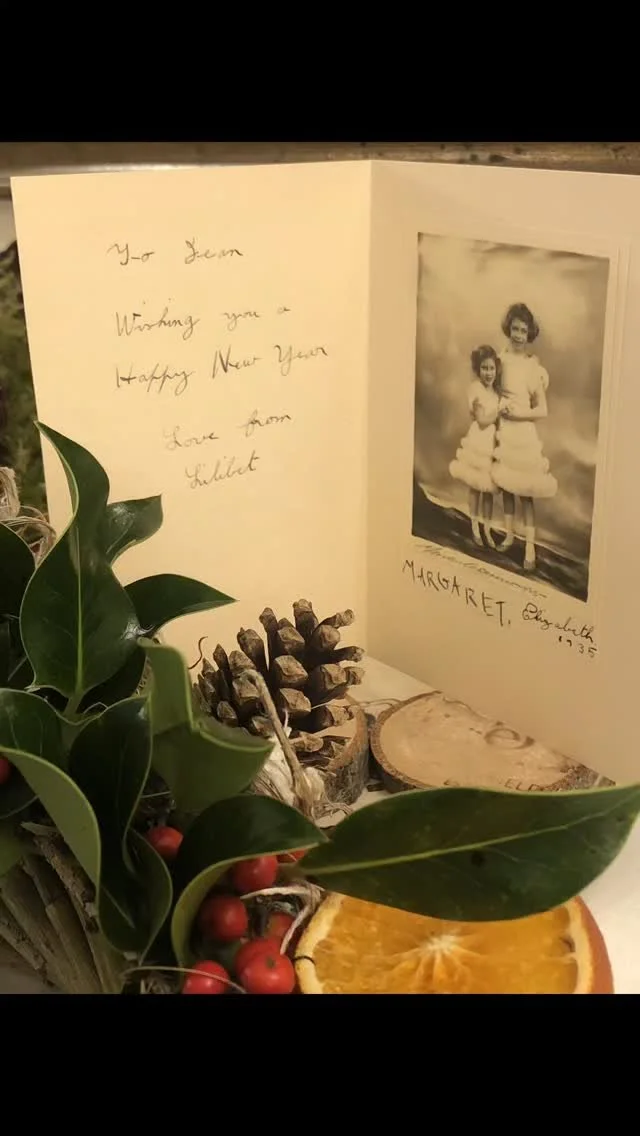 To Jean
Wishing you a
Happy New Year
Love from
Lilibet
MARGARET, Elizabeth
1935